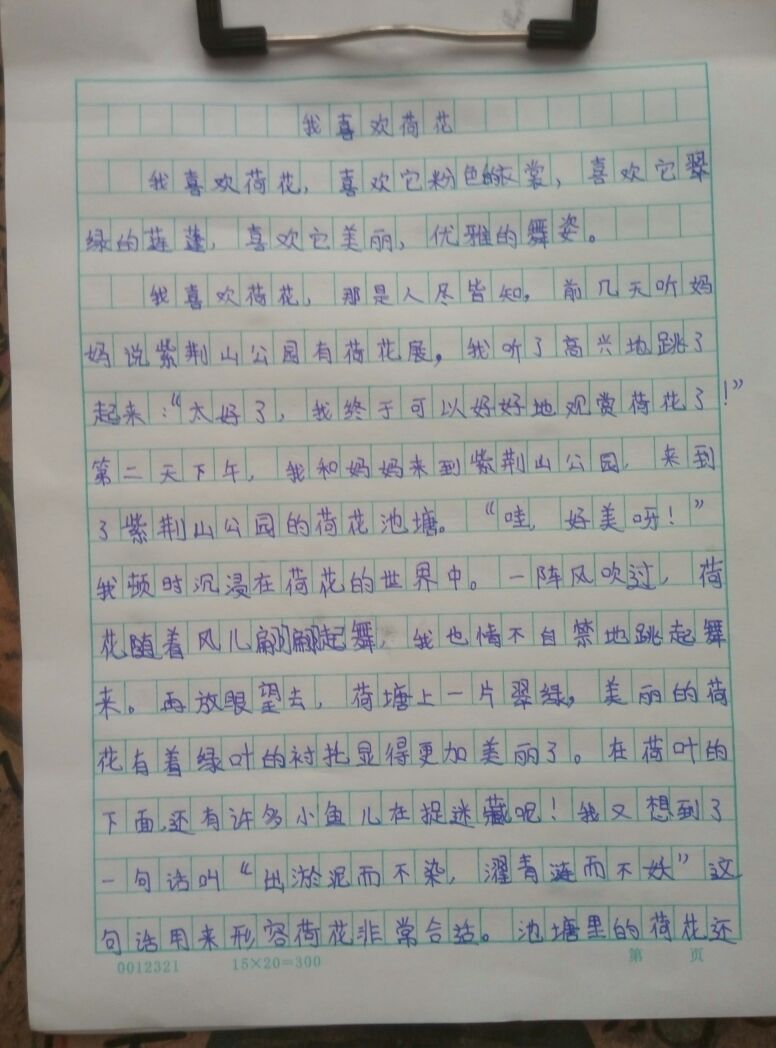 我喜欢荷花
我喜欢荷花，喜欢它粉色的衣裳，喜欢它翠
绿的莲蓬，喜欢它美丽、优雅的舞姿。
我喜欢荷花，那是人尽皆知，前几天听妈
妈说紫荆山公园有荷花展，我听了高兴地跳了
起来：“太好了，我终于可以好好地观赏荷花了！”
第二天下午，我和妈妈来到紫荆山公园，来到
了紫荆山公园的荷花池塘。“哇，好美呀！”
我顿时沉浸在荷花的世界中。一阵风吹过，荷
花随着风儿翩翩起舞，我也情不自禁地跳起舞
来。再放眼望去，荷塘上一片翠绿，美丽的荷
花有着绿叶的衬托显得更加美丽了。在荷叶的
下面，还有许多小鱼儿在捉迷藏呢！我又想到了
一句话叫“出淤泥而不染，濯青涟而不妖”这
句话用来形容荷花非常合适。池塘里的荷花还
0012321 15×20=300 第 页